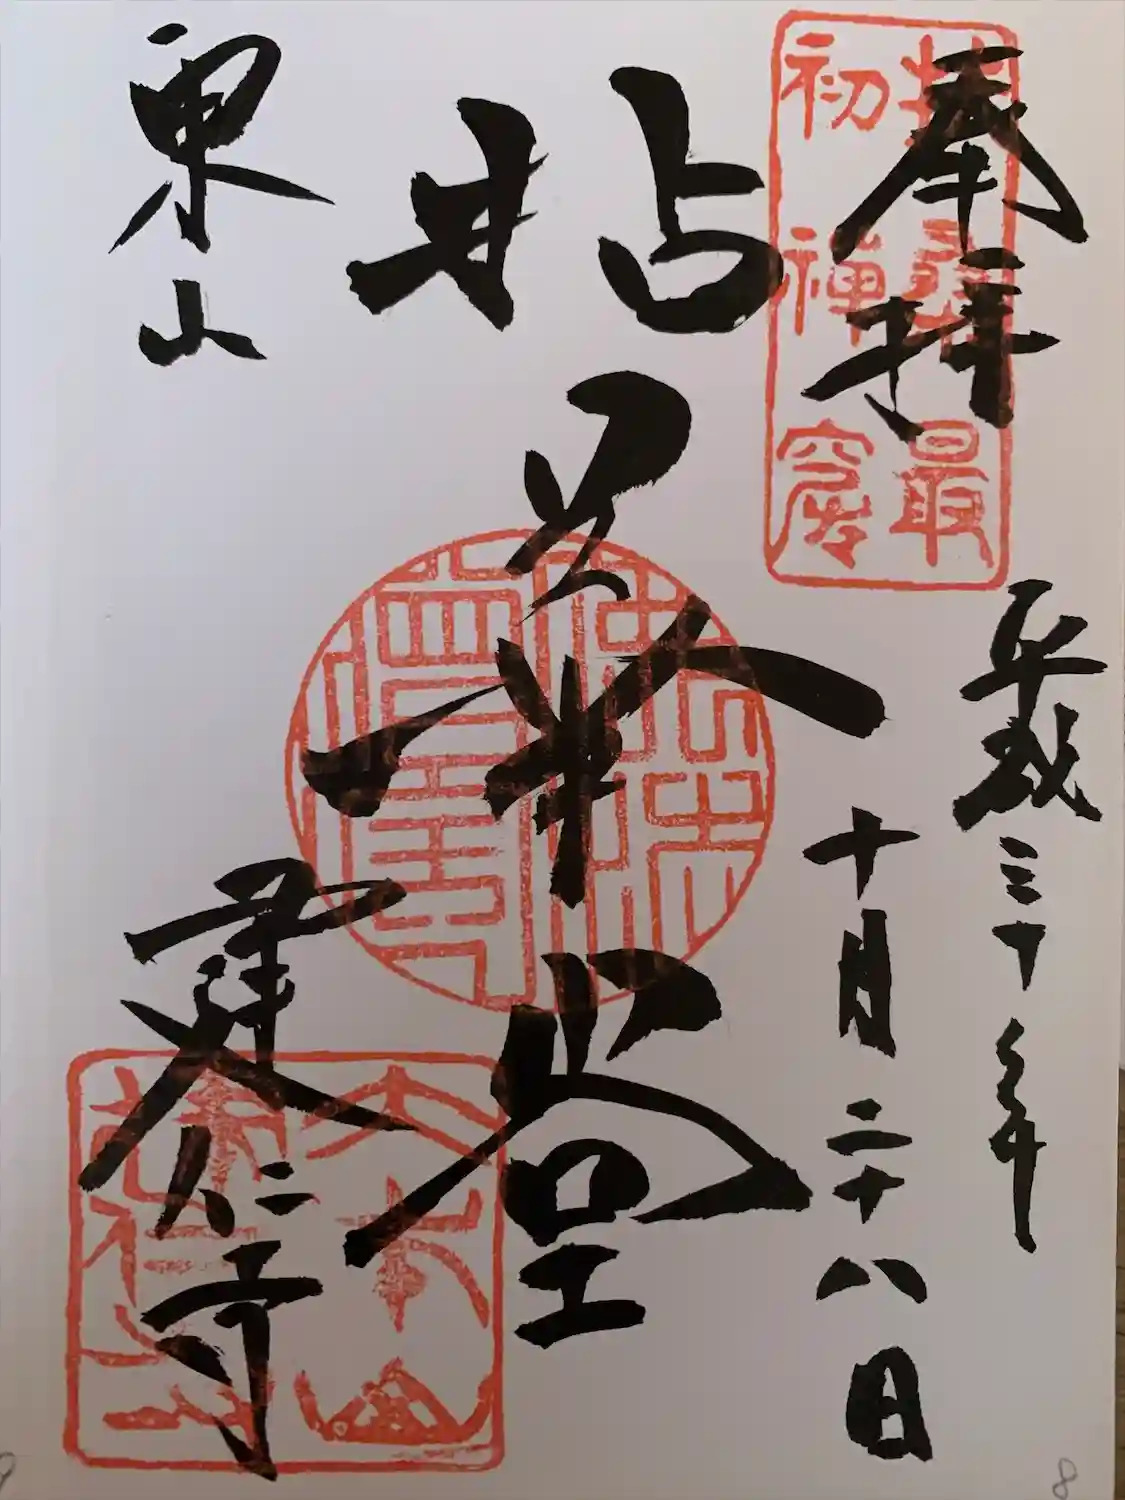 奉拝
扶桑最
初禅窟
平成三十年
十月二十八日
拈華堂
東山
建仁寺
8